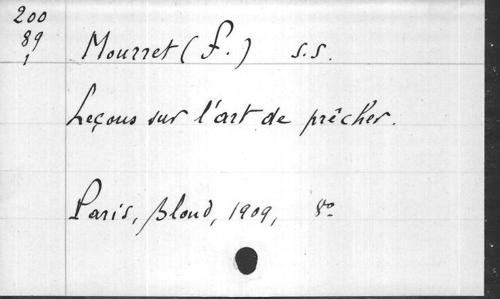 200
89
1
Mourret (F.) s.s.
Leçons sur l'art de prêcher.
Paris, Bloud, 1909, 8º